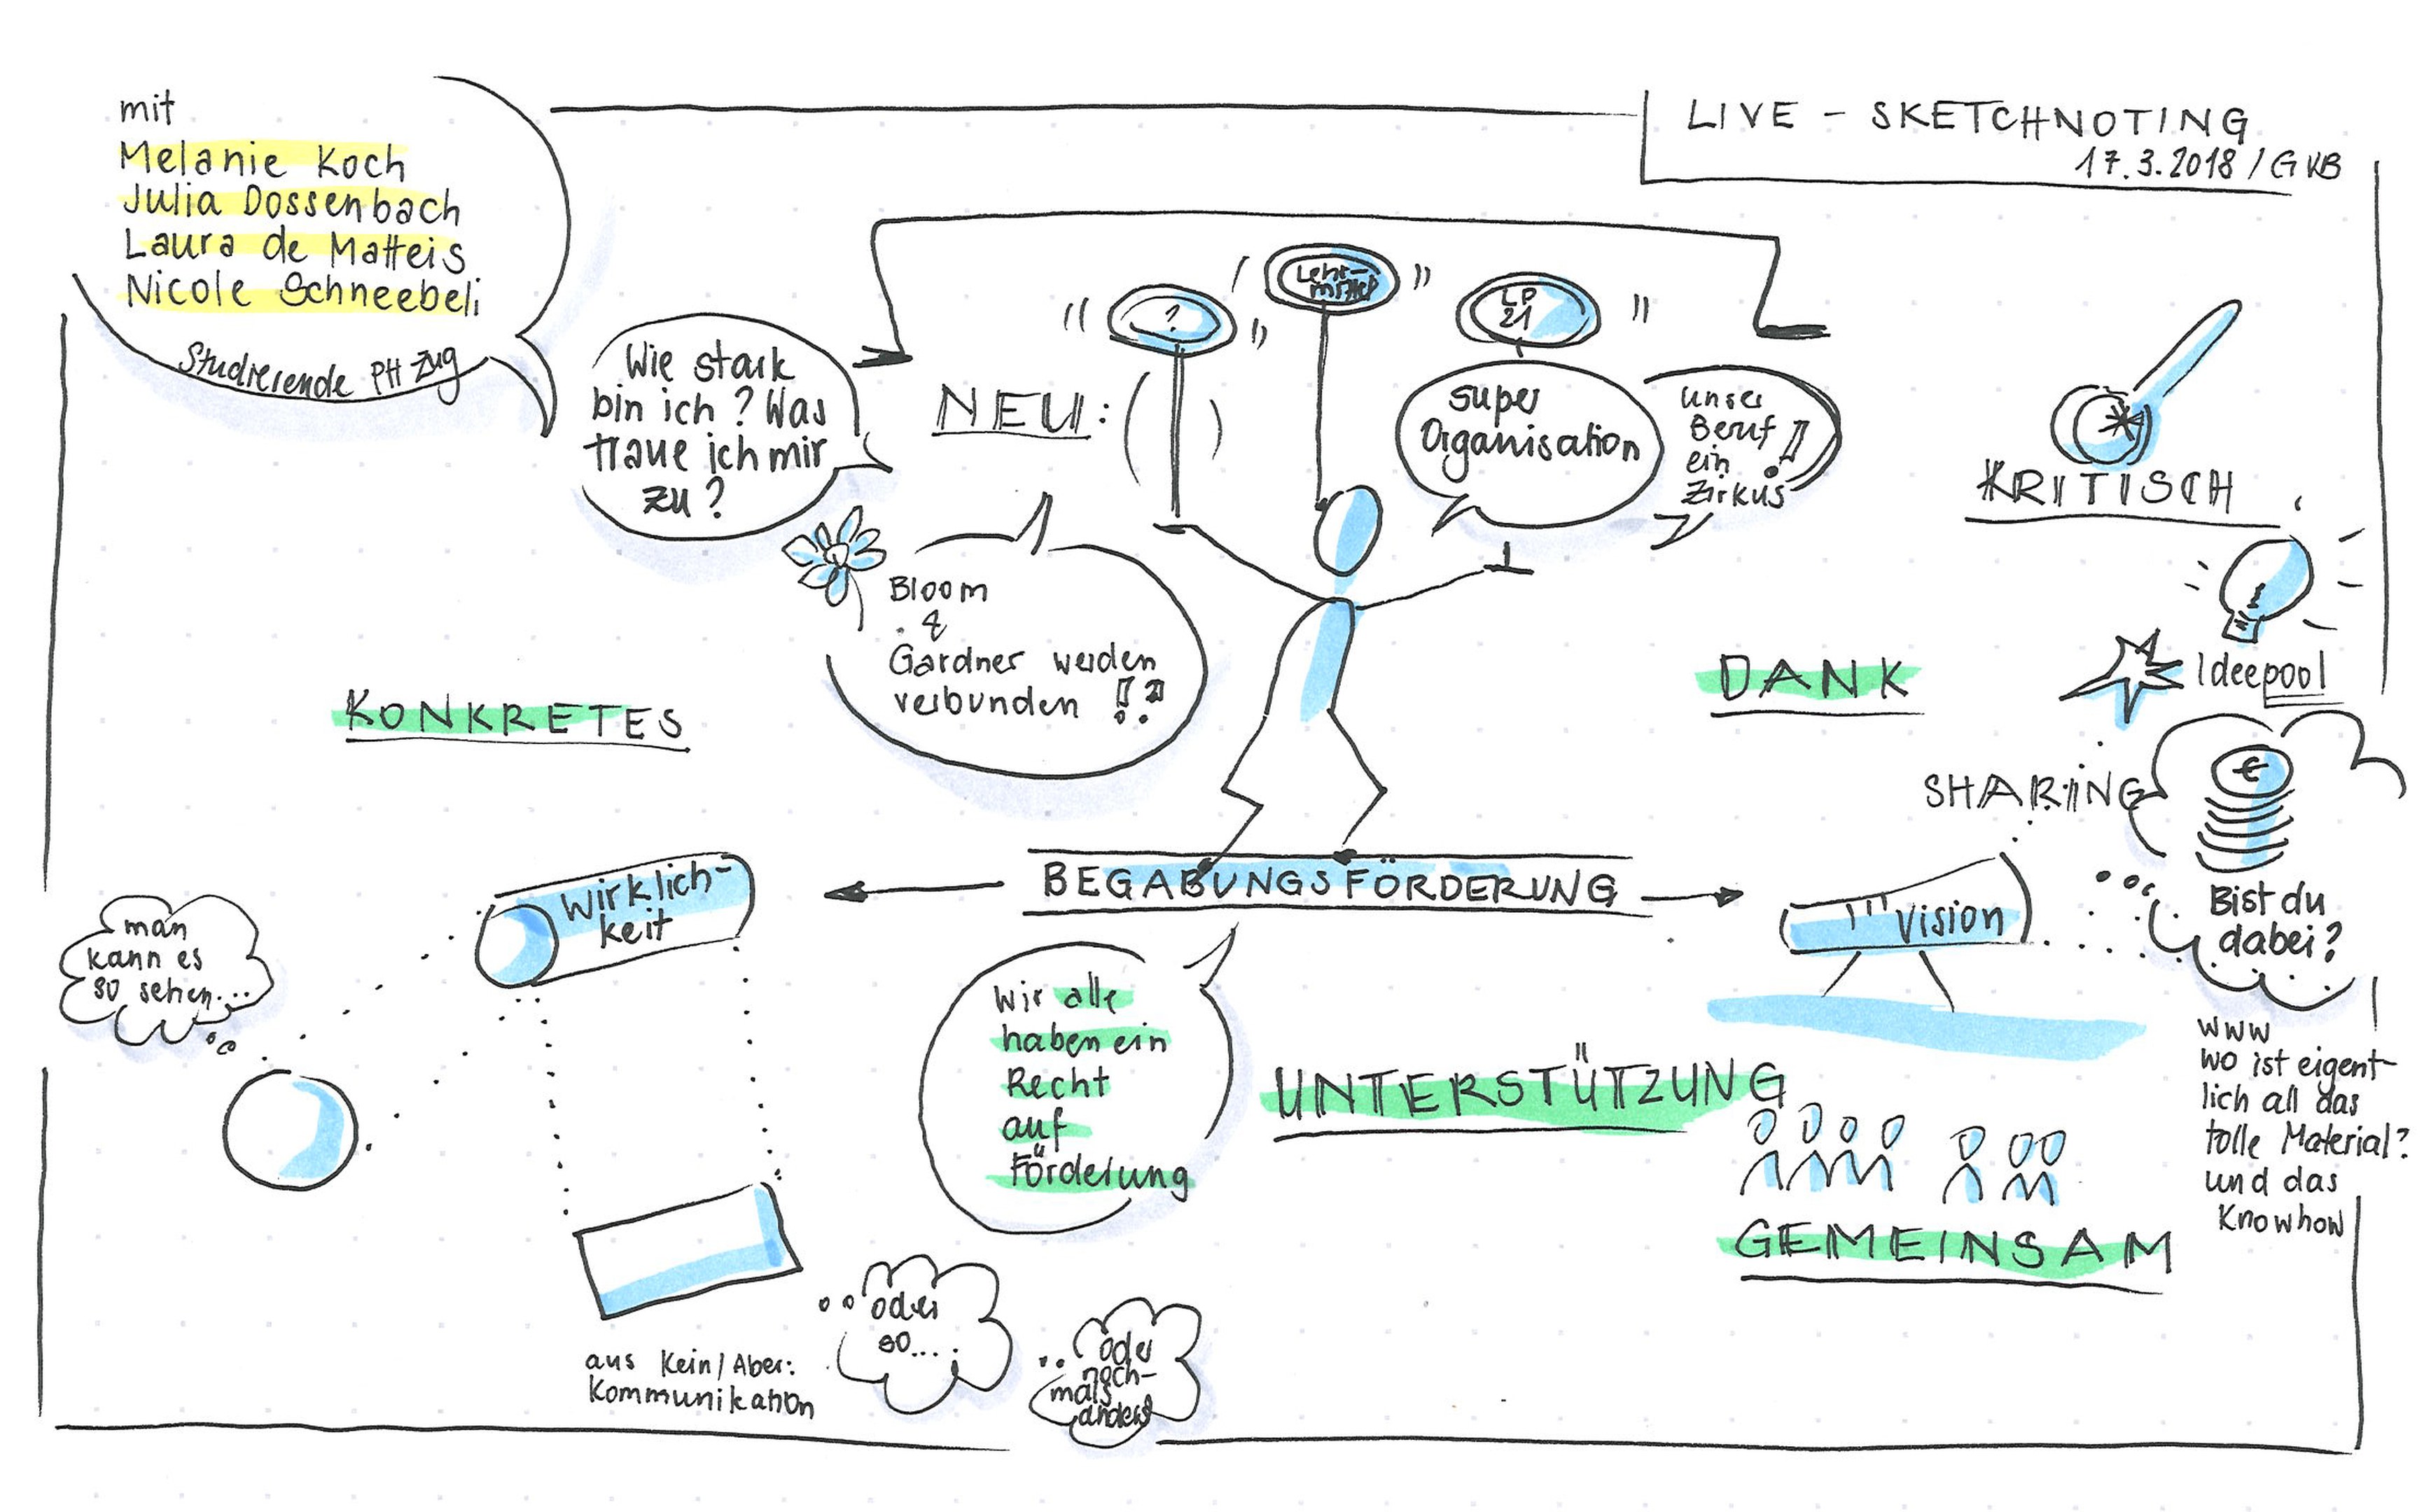 mit
Melanie Koch
Julia Dossenbach
Laura de Matteis
Nicole Schneebeli
Studierende PH Zug
LIVE - SKETCHNOTING
17.3.2018 / GKB
Wie stark
bin ich? Was
traue ich mir
zu?
NEU:
?
Lehr-
mittel
LP
21
super
Organisation
unser
Beruf
ein
Zirkus!
KRITISCH
Bloom
&
Gardner werden
verbunden !?
KONKRETES
DANK
Ideepool
SHARING
€
Bist du
dabei?
BEGABUNGSFÖRDERUNG
Wirklich-
keit
Vision
man
kann es
so sehen...
Wir alle
haben ein
Recht
auf
Förderung
UNTERSTÜTZUNG
GEMEINSAM
www
wo ist eigent-
lich all das
tolle Material?
und das
Knowhow
oder
so....
oder
noch-
mals
anders
aus Kein/Aber:
Kommunikation